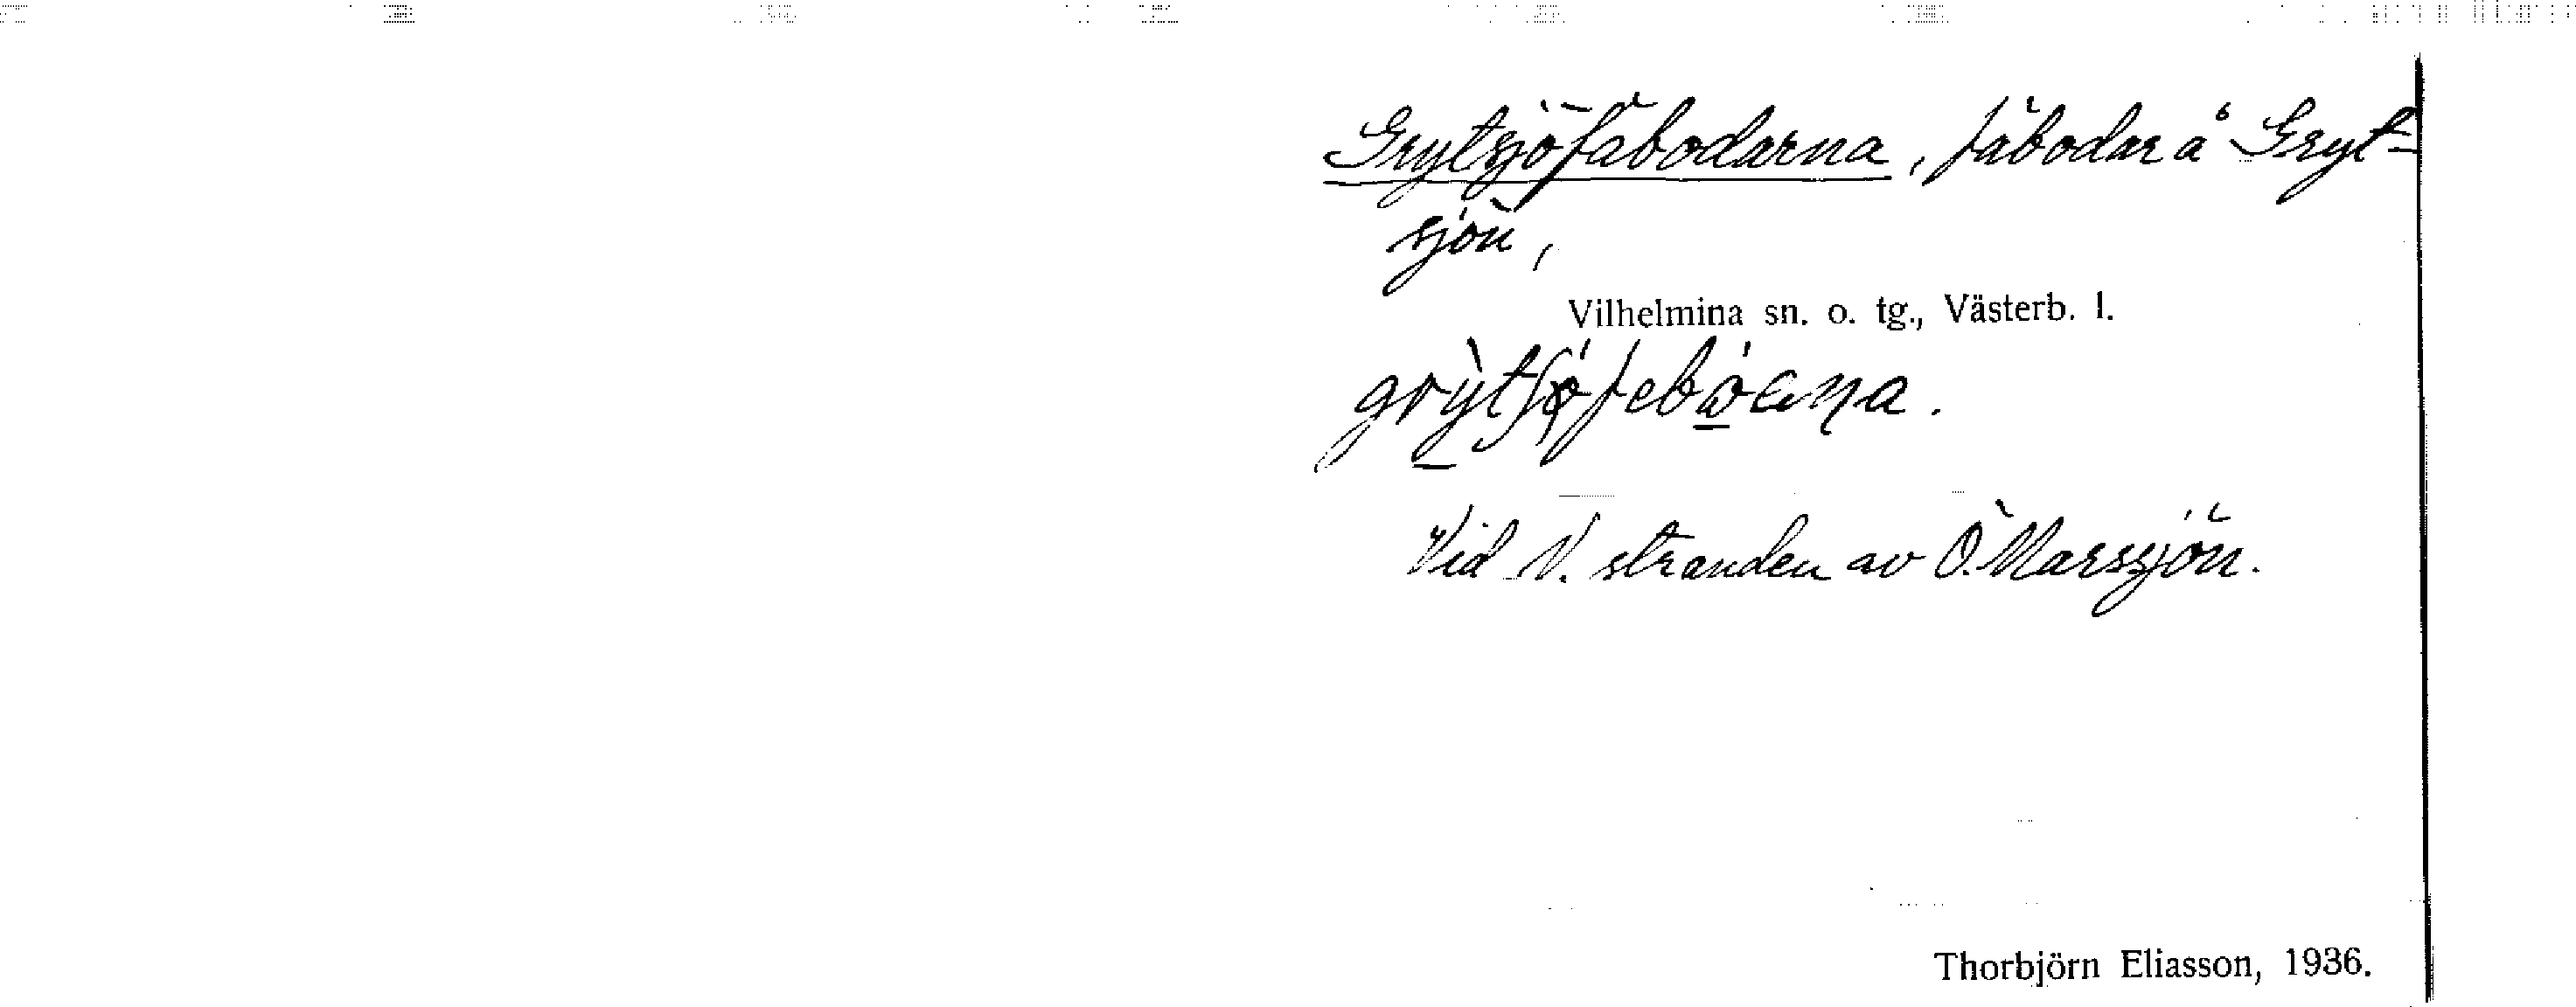 Grytsjöfäbodarna, fäbodar å Gryt-
sjön,
Vilhelmina sn. o. tg., Västerb. l.
Vid N. stranden av Ö. Marssjön.
Thorbjörn Eliasson, 1936.